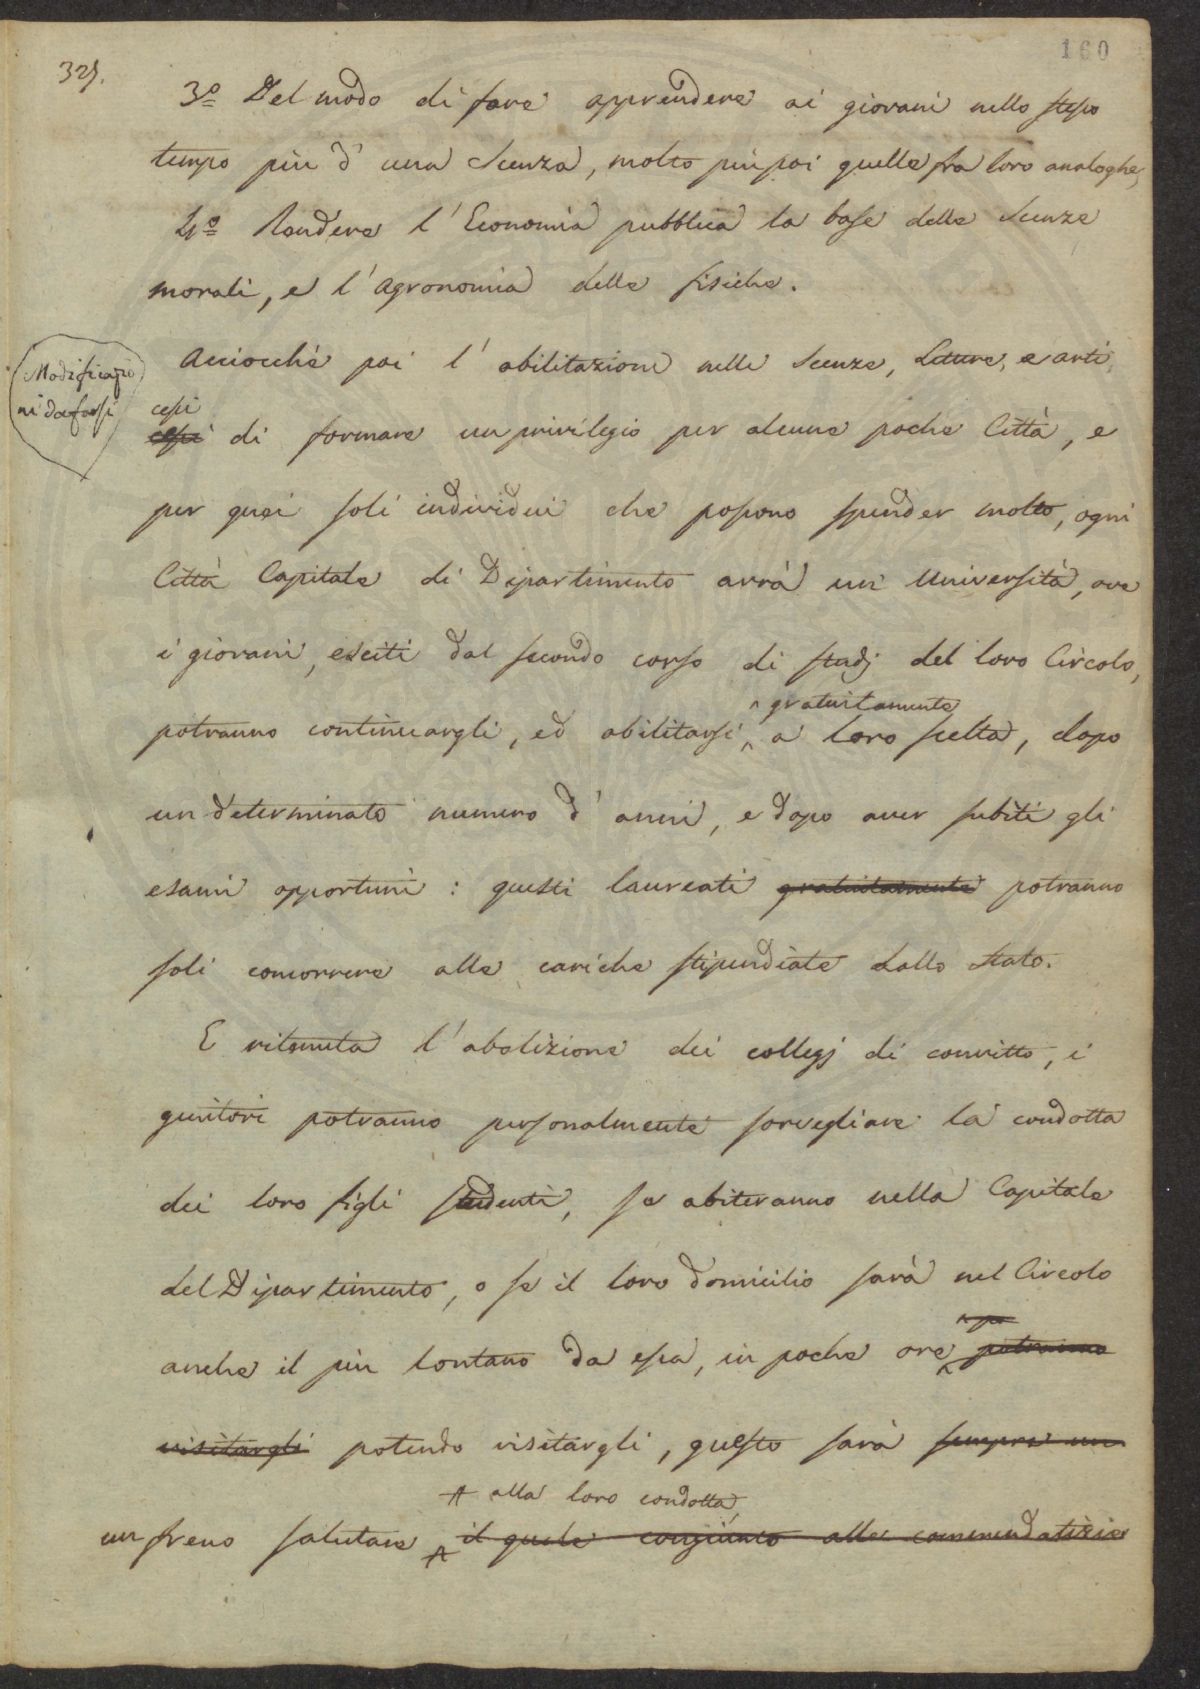 160
325.
3º Del modo di fare apprendere ai giovani nello stesso
tempo più d'una Scenza, molto più poi quelle fra loro analoghe,
4º Rendere l'Economia pubblica la base delle Scenze
morali, e l'Agronomia delle fisiche.
Acciocchè poi l'abilitazione nelle Scenze, Letture, e arti,
Modificazio
ni da farsi
cessi
cessi di formare un privilegio per alcune poche Città, e
per quei soli individui che possono spender molto, ogni
Città Capitale di Dipartimento avrà un' Università, ove
i giovani, esciti dal secondo corso di studj del loro Circolo,
gratuitamente
potranno continuargli, ed abilitarsi, a loro scelta, dopo
un determinato numero d'anni, e dopo aver subiti gli
esami opportuni: questi laureati gratuitamente potranno
soli concorrere alle cariche stipendiate dallo Stato.
E ritenuta l'abolizione dei collegj di convitto, i
genitori potranno personalmente sorvegliare la condotta
dei loro figli studenti, se abiteranno nella Capitale
del Dipartimento, o se il loro domicilio sarà nel Circolo
anche il più lontano da essa, in poche ore potranno
visitargli potendo visitargli, questo sarà sempre un
alla loro condotta,
un freno salutare il quale congiunto alle commendatizie